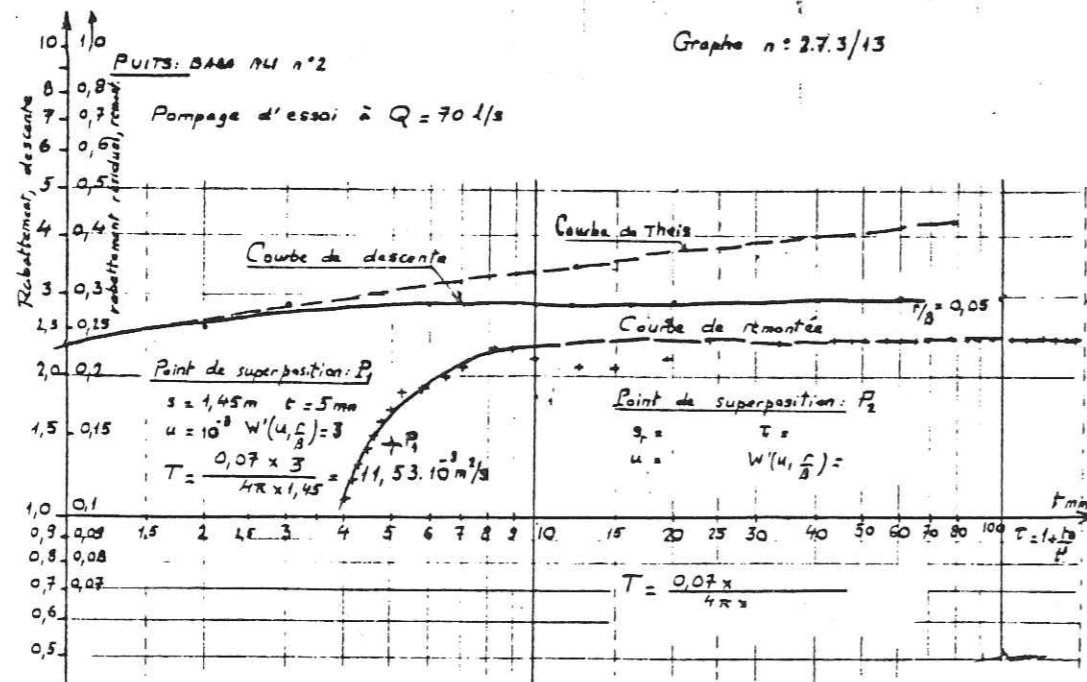 Graphe n: 2.7.3/13
PUITS: BABA ALI n°2
Pompage d'essai à Q = 70 l/s
Rabattement, descente
rabattement résiduel, remont.
10 1,0
8 0,8
7 0,7
6 0,6
5 0,5
4 0,4
3 0,3
2,5 0,25
2,0 0,2
1,5 0,15
1,0 0,1
0,9 0,09
0,8 0,08
0,7 0,07
0,6
0,5
Courbe de Theis
Courbe de descente
r/B = 0,05
Courbe de remontée
Point de superposition: P1
s = 1,45m t = 5mn
W'(u, r/B) = 3
P1
T = 0,07 x 3 / 4π x 1,45 = 11,53.10⁻³ m²/s
Point de superposition: P2
sr = τ =
u = W'(u, r/B) =
t min
1,5 2 2,5 3 4 5 6 7 8 9 10 15 20 25 30 40 50 60 70 80 100
T = 0,07 x / 4π x